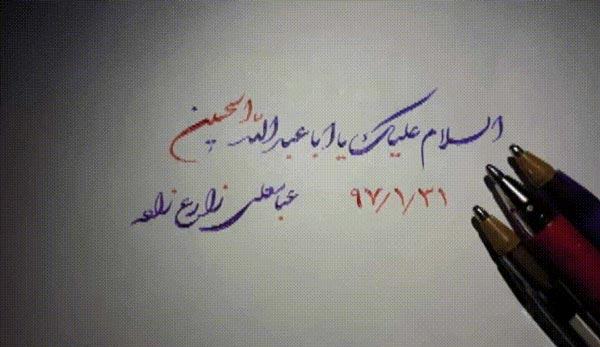 السلام علیک یا ابا عبدالله الحسین
۹۷/۱/۳۱
عباسعلی زارع زاده